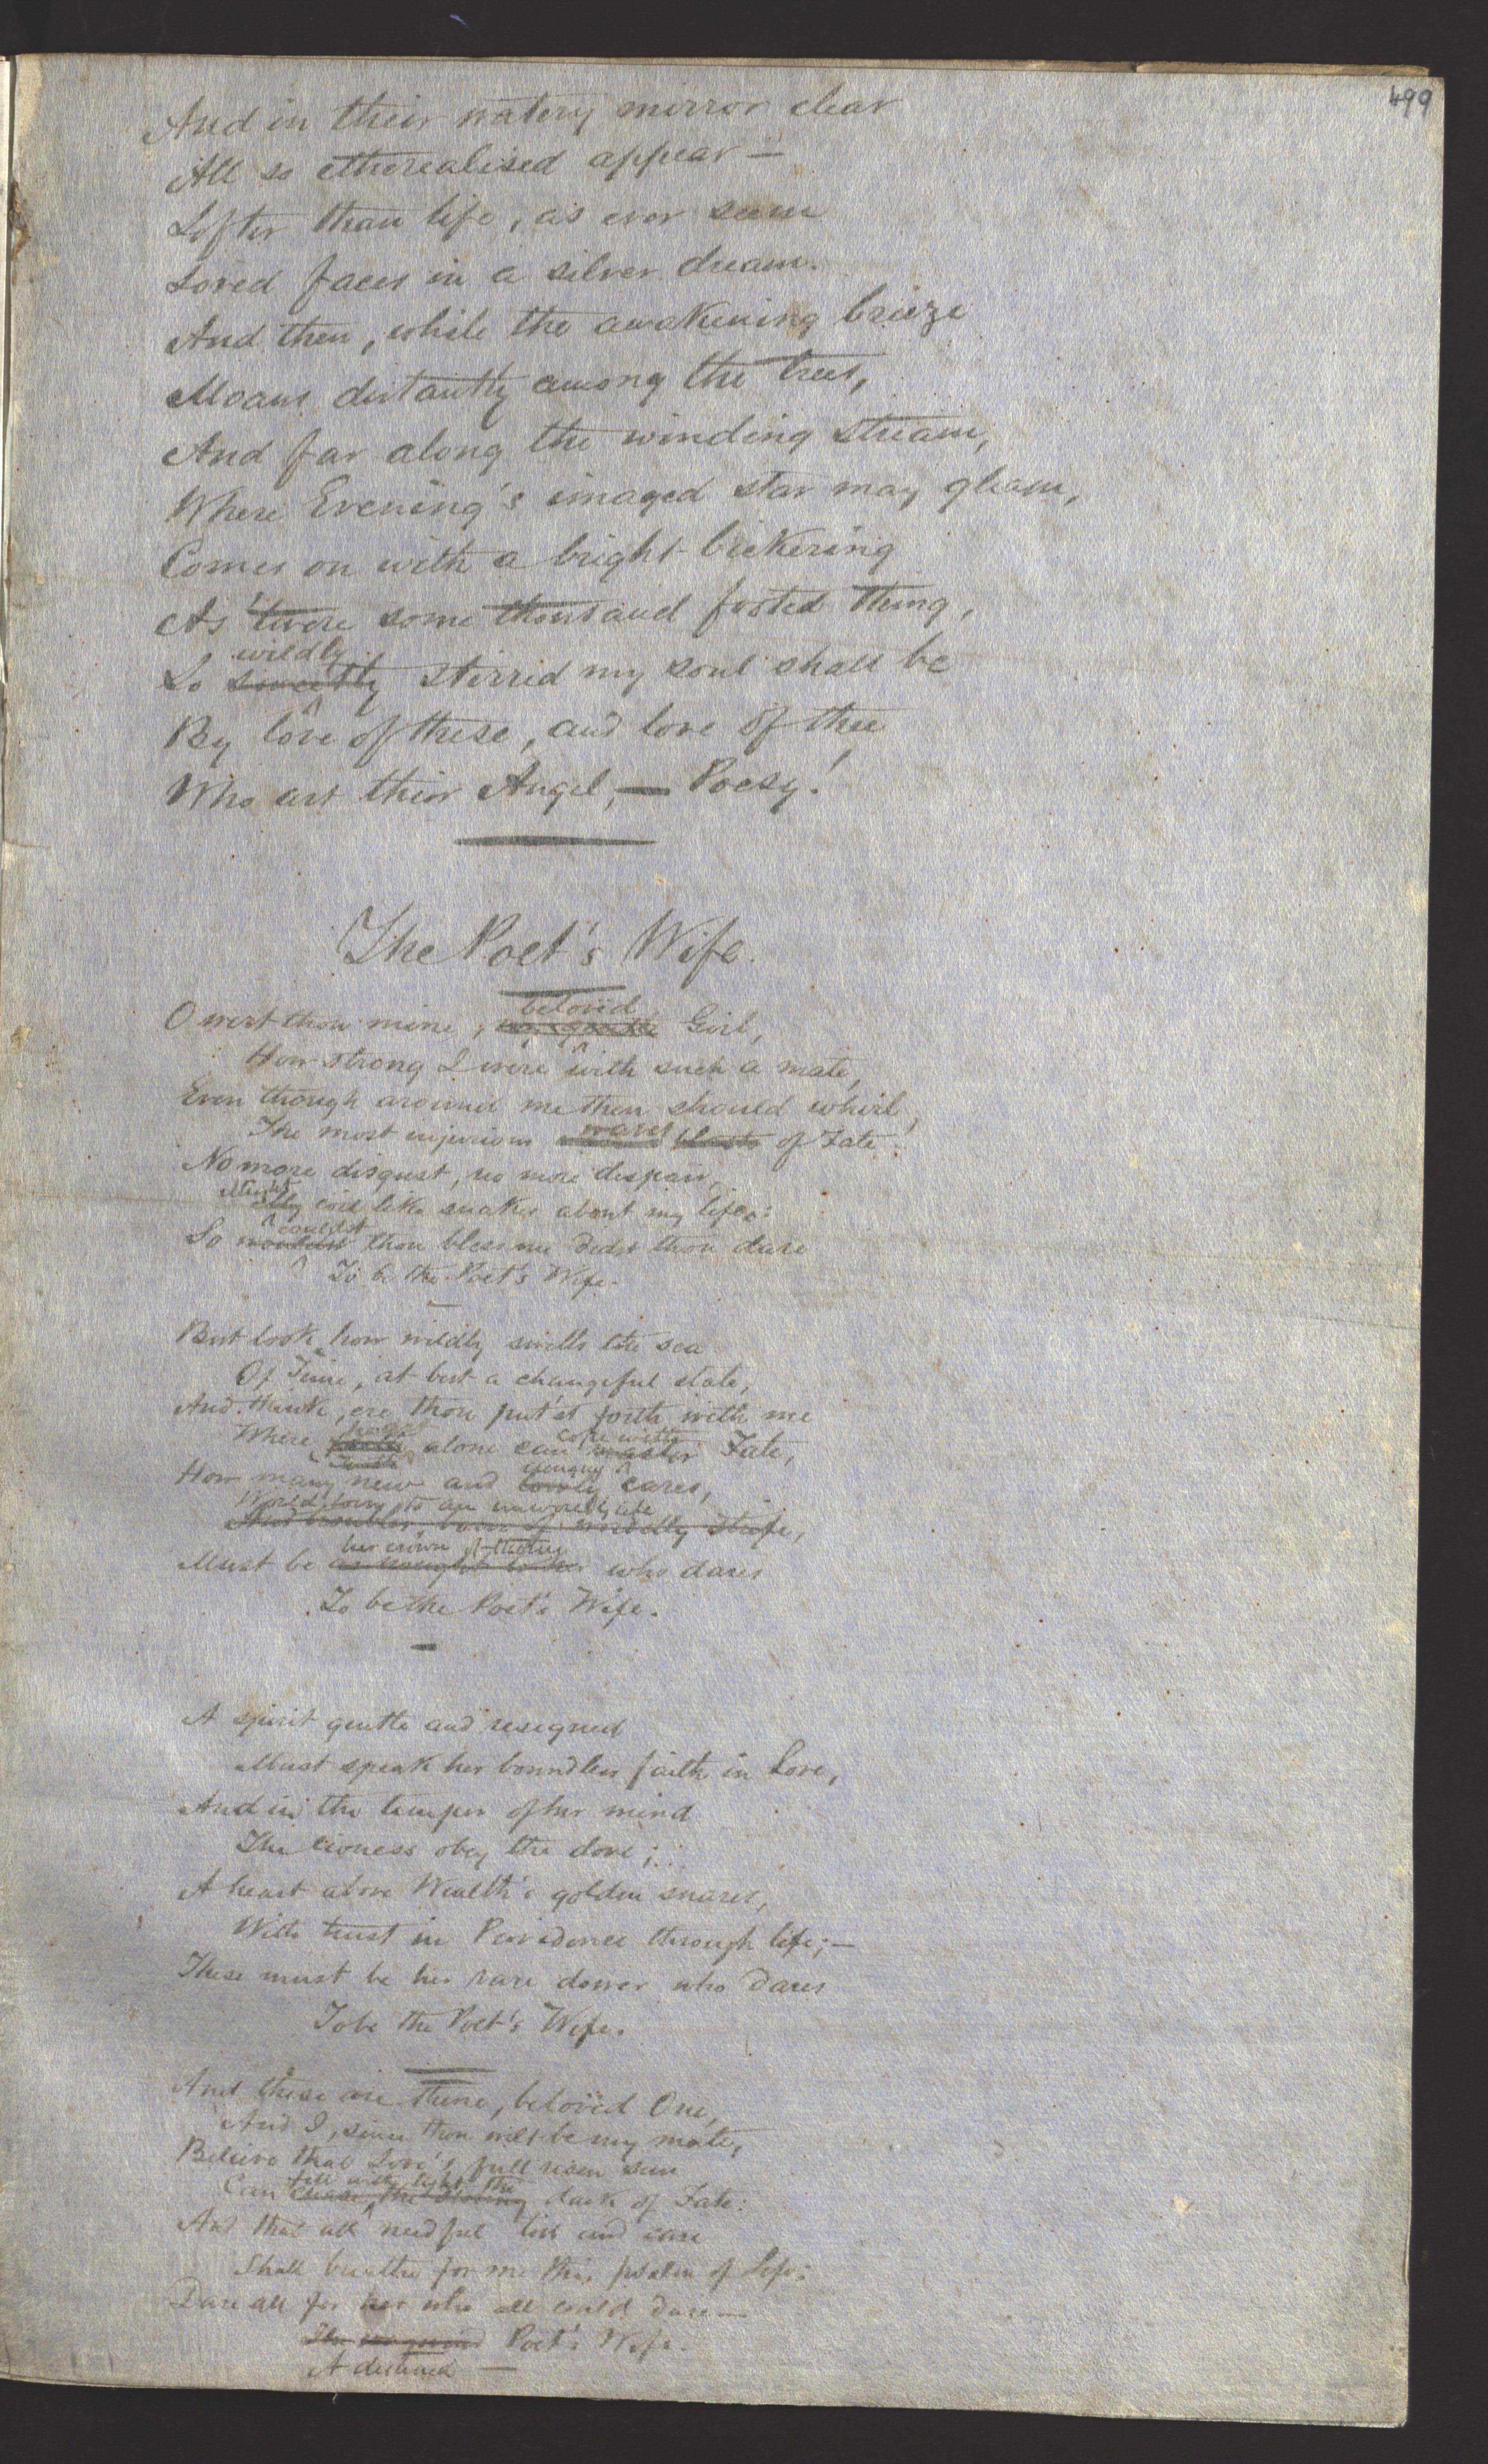 499
And in their watery mirror clear
All so etherealised appear —
Softer than life, as ever seem
Loved faces in a silver dream.
And then, while the awakening breeze
Moans distantly among the trees,
And far along the winding stream,
Where Evening's imaged star may gleam,
Comes on with a bright bickering
As 'twere some thousand footed thing,
wildly
So sweetly stirrid my soul shall be
By love of these, and love of thee
Who art their Angel, — Poesy!
The Poet's Wife.
beloved
O wert thou mine, Girl,
How strong I were with such a mate,
Even though around me then should whirl,
waves
The most injurious blasts of Fate:
No more disgust, no more despair,
Might
coil like snakes about my life:
couldst
So wouldst thou bless me didst thou dare
To be the Poet's Wife.
But look how wildly swells the sea
Of Time, at best a changeful state,
And think, ere thou put'st forth with me
cope with
Where alone can master Fate,
Faith
How many new and lowly cares,
World-born, to an unworldly life
And troubles born of worldly strife,
her crown of
Must be as nought to her who dares
To be the Poet's Wife.
A spirit gentle and resigned
Must speak her boundless faith in Love,
And in the temper of her mind
The lioness obey the dove;
A heart above Wealth's golden snares,
With trust in Providence through life; —
These must be her rare dower who dares
To be the Poet's Wife.
And these are thine, beloved One,
And I, since thou wilt be my mate,
Believe that Love's full risen sun
fill with light the
Can chase the dark of Fate:
And that all needful toil and care
Shall breathe for me this psalm of Life:
Dare all for her who all could dare —
The Poet's Wife.
A destined —